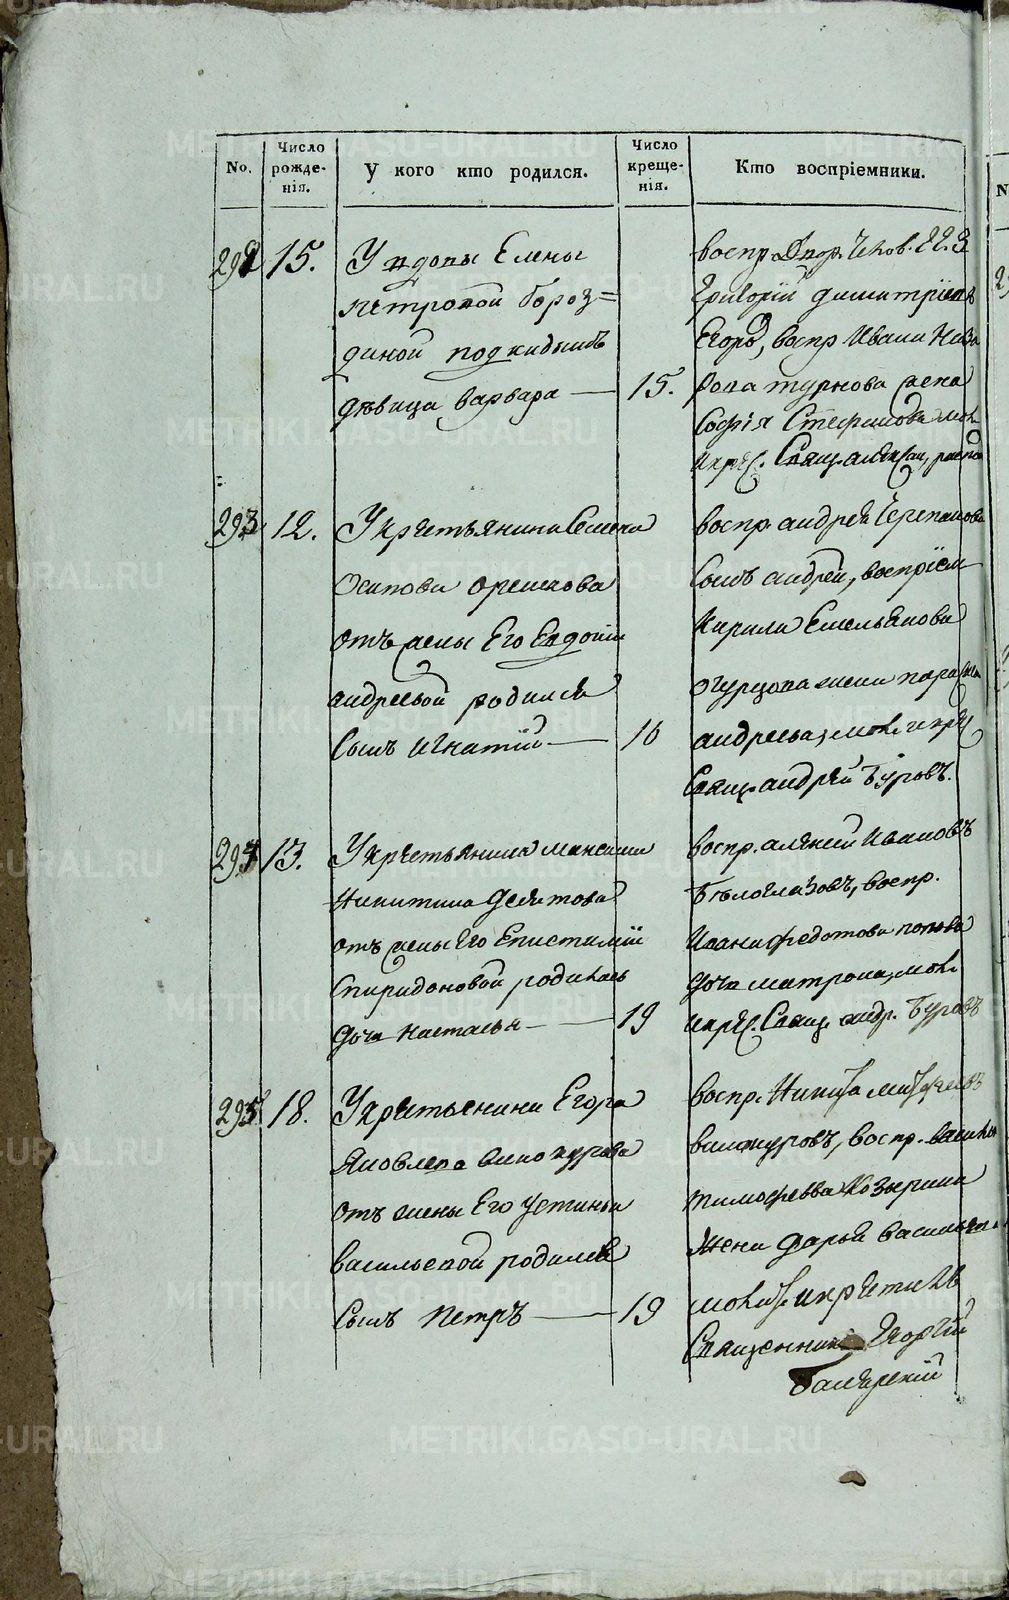 No.
Число рожде- нія.
У кого кто родился.
Число креще- нія.
Кто воспріемники.
292 15.
У вдовы Елены
Петровой Бороз=
диной подкидышъ
дѣвица Варвара — 15.
воспр.
Григорій Димитріевъ
Егоръ, воспр Ивана
жена
Софія Стефанова мол.
и крес. Свящ.
293 12.
У крестьянина Семена
Осипова Орешкова
отъ жены Его Евдокіи
андреевой родился
сынъ Игнатій — 16
воспр. андрея Черепанова
сынъ андрей, воспріем
Кирила Емельянова
Огурцова жена
андреева, мол. и крес
Свящ. андрей Буровъ.
294 13.
У крестьянина Максима
Никитина Девятова
отъ жены Его Епистиміи
Спиридоновой родилась
дочь Настасья — 19
воспр. алексей Ивановъ
Белоглазовъ, воспр.
Ивана Федотова Попова
дочь матрона, мол.
и крес. Свящ. андр. Буровъ
295 18.
У крестьянина Егора
Яковлева Винокурова
отъ жены Его Устиньи
васильевой родился
сынъ Петръ — 19
воспр. Никита
воспр.
тимофеева Козырина
жена дарья васильева
молит. и крестилъ
Священникъ Георгій
METRIKI.GASO-URAL.RU